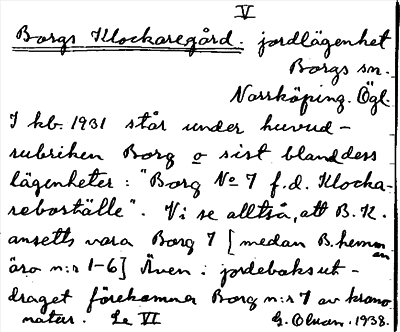 V
Borgs Klockaregård. jordlägenhet
Borgs sn.
Norrköping. Ögl.
I kb. 1931 står under huvud-
rubriken Borg o sist bland dess
lägenheter: "Borg No 7 f.d. Klocka-
reboställe". Vi se alltså, att B. K.
ansetts vara Borg 7 [medan B. hemmanen
äro n:r 1-6] Även i jordeboksut-
draget förekommer Borg n:r 7 av krono
natur. Se VI
G. Olson. 1938.